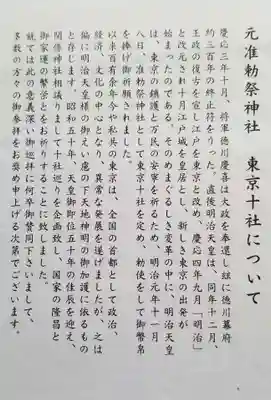 元准勅祭神社　東京十社について
慶応三年十月、将軍徳川慶喜は大政を奉還し玆に徳川幕府
約三百年の終止符をうった。直後明治天皇は、同年十二月、
王政の復古を宣し江戸を東京と改め、慶応四年九月「明治」
と改元され十月江戸城を皇居とし、新しき東京の出発が
始まったのである。このめまぐるしき変革の中に、明治天皇
は、東京の鎮護と万民の安寧を祈るため、明治元年十一月
八日、准勅祭神社として東京十社を定め、勅使をして御幣帛
を捧げ御祈願されました。
以来百有余年今や私共の東京は、全国の首都として政治、
経済、文化の中心となり、異常な発展を遂げましたが、之は
偏に明治天皇様の御かえ、庵の下天地神明の御加護に依るもの
と存じます。昭和五十年、今上天皇御即位五十年の佳辰を迎え、
関係神社相議りまして十社巡りを企画致し、国家の隆昌と
御家運の繁栄とをお祈りすることに致しました。
就ては此の意義深い御巡拝に何卒御賛同下さいまして、
多数の方々の御参拝をお奨め申上げる次第でございます。